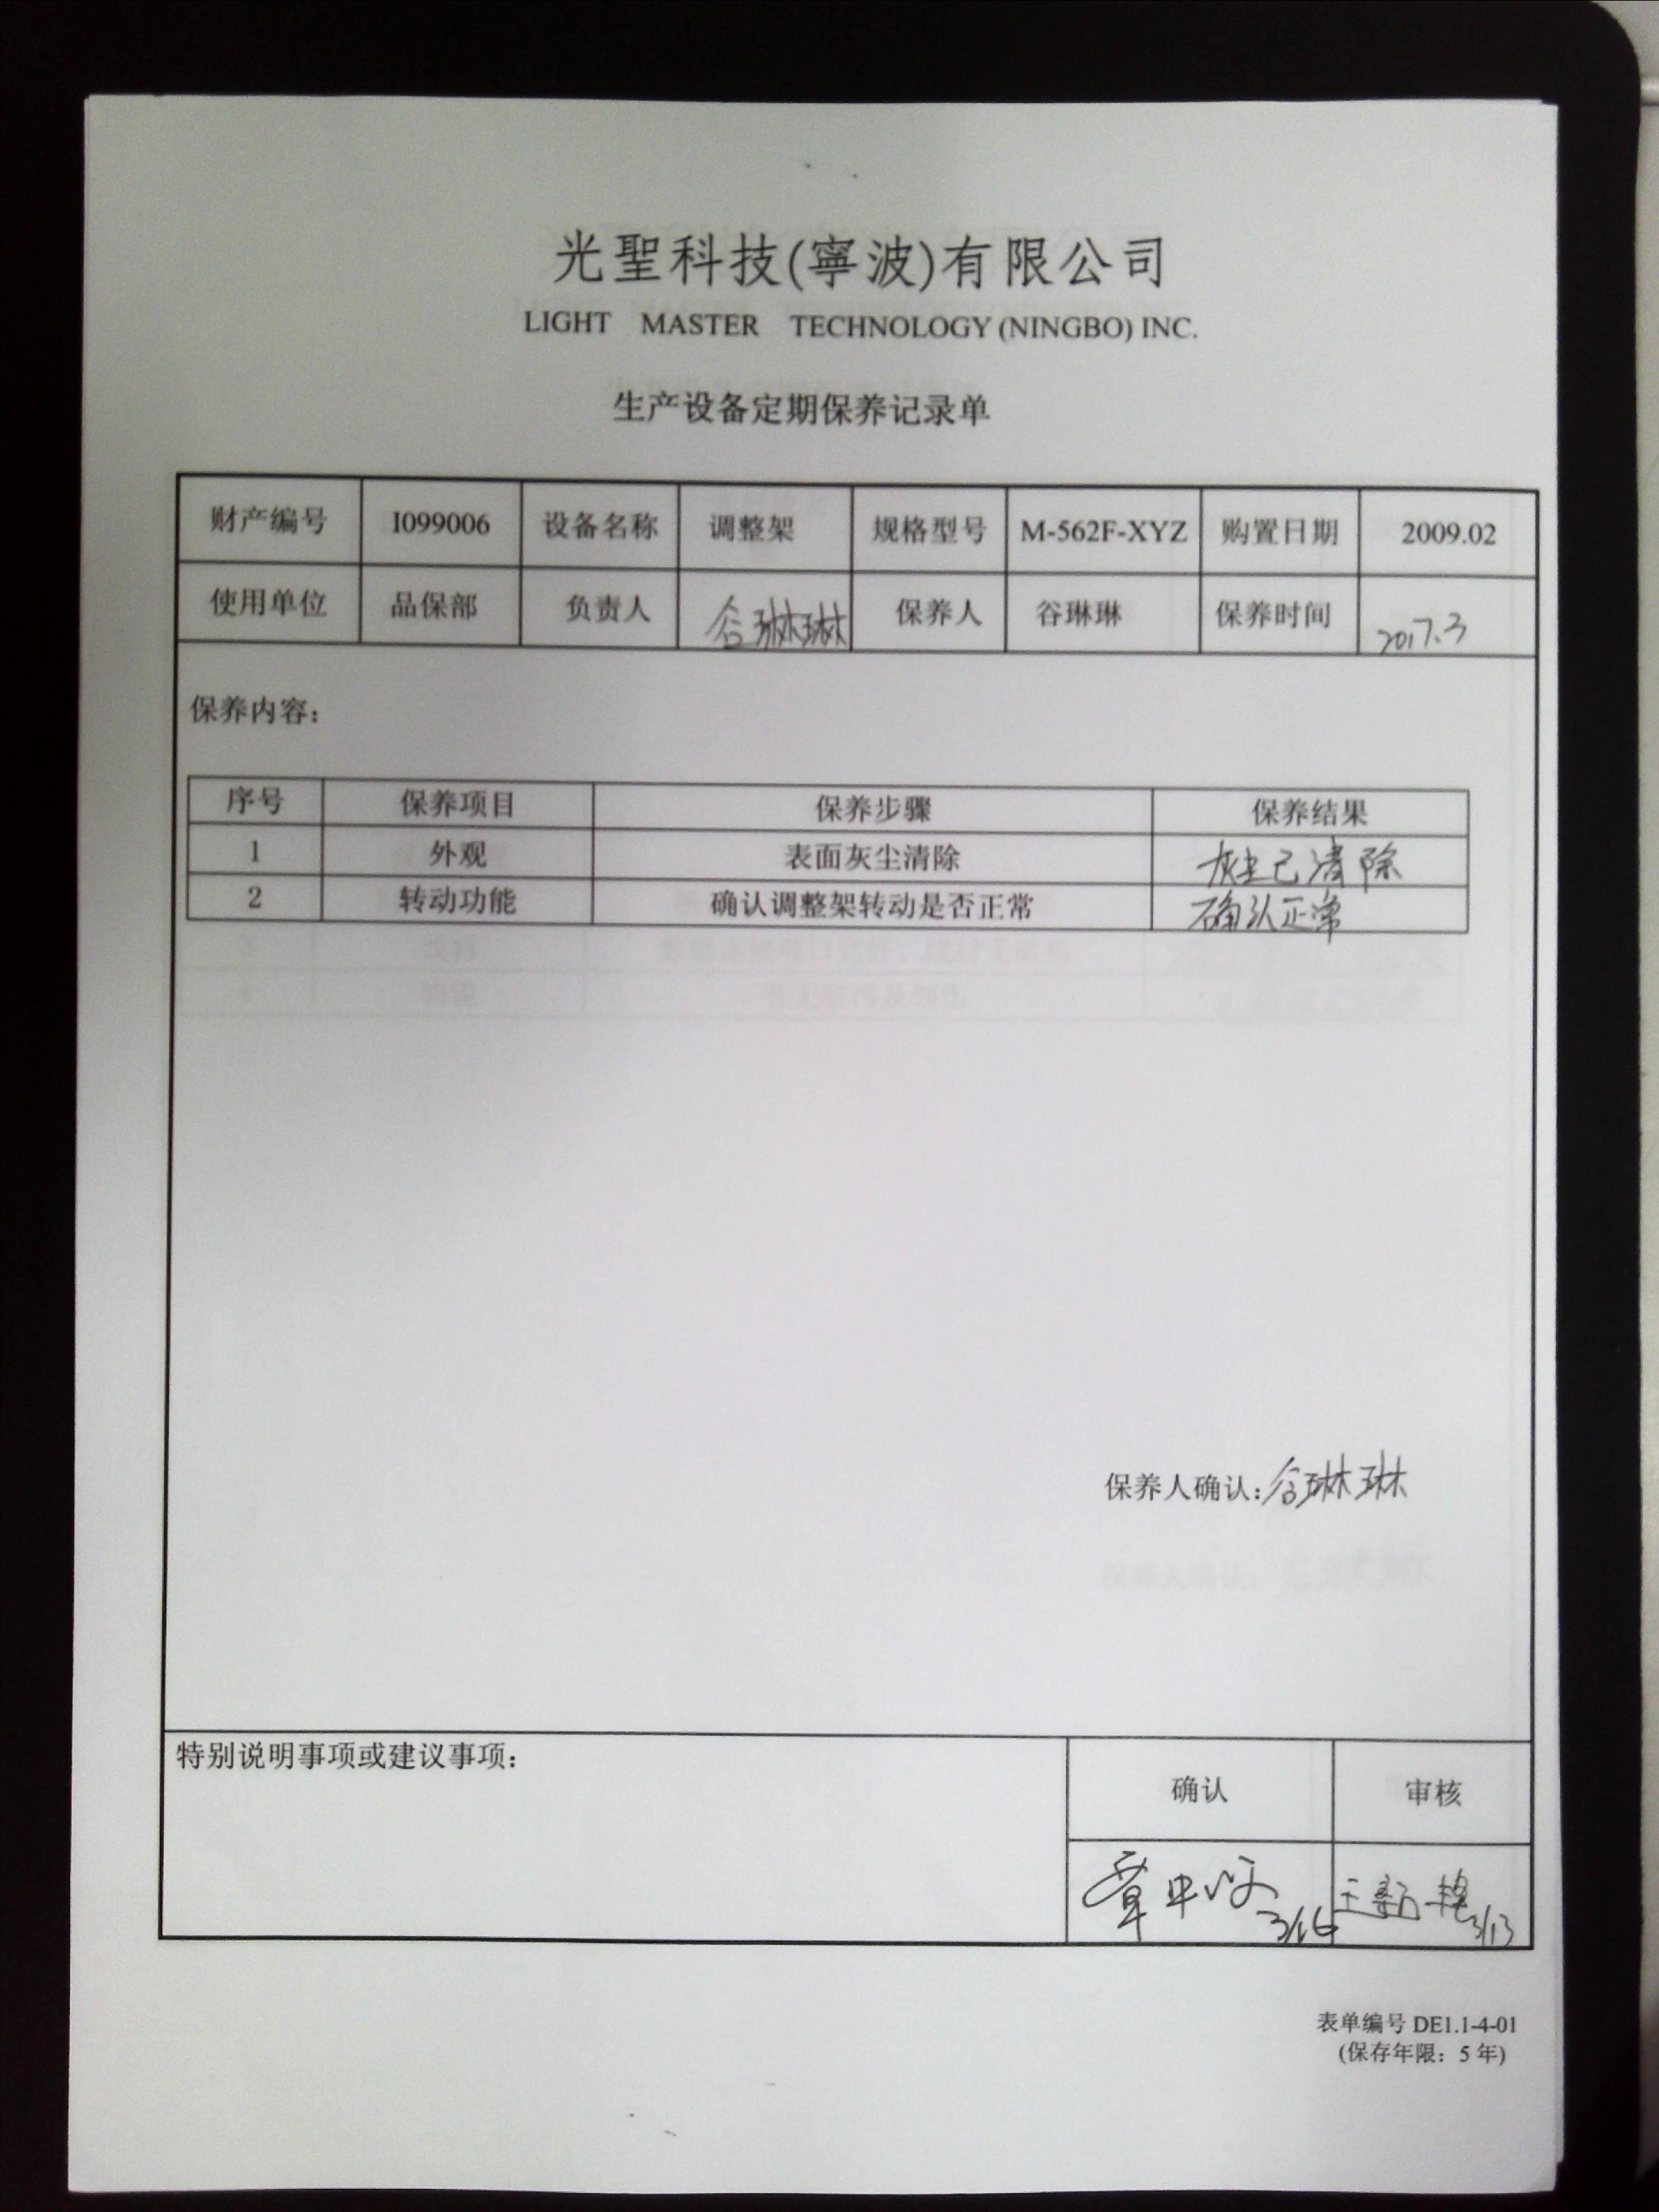 光聖科技(寧波)有限公司
LIGHT MASTER TECHNOLOGY (NINGBO) INC.
生产设备定期保养记录单
财产编号 I099006 设备名称 调整架 规格型号 M-562F-XYZ 购置日期 2009.02
使用单位 品保部 负责人 谷琳琳 保养人 谷琳琳 保养时间 2017.3
保养内容：
序号 保养项目 保养步骤 保养结果
1 外观 表面灰尘清除 灰尘已清除
2 转动功能 确认调整架转动是否正常 确认正常
保养人确认：谷琳琳
特别说明事项或建议事项： 确认 审核
3/13
表单编号 DE1.1-4-01
(保存年限：5 年)